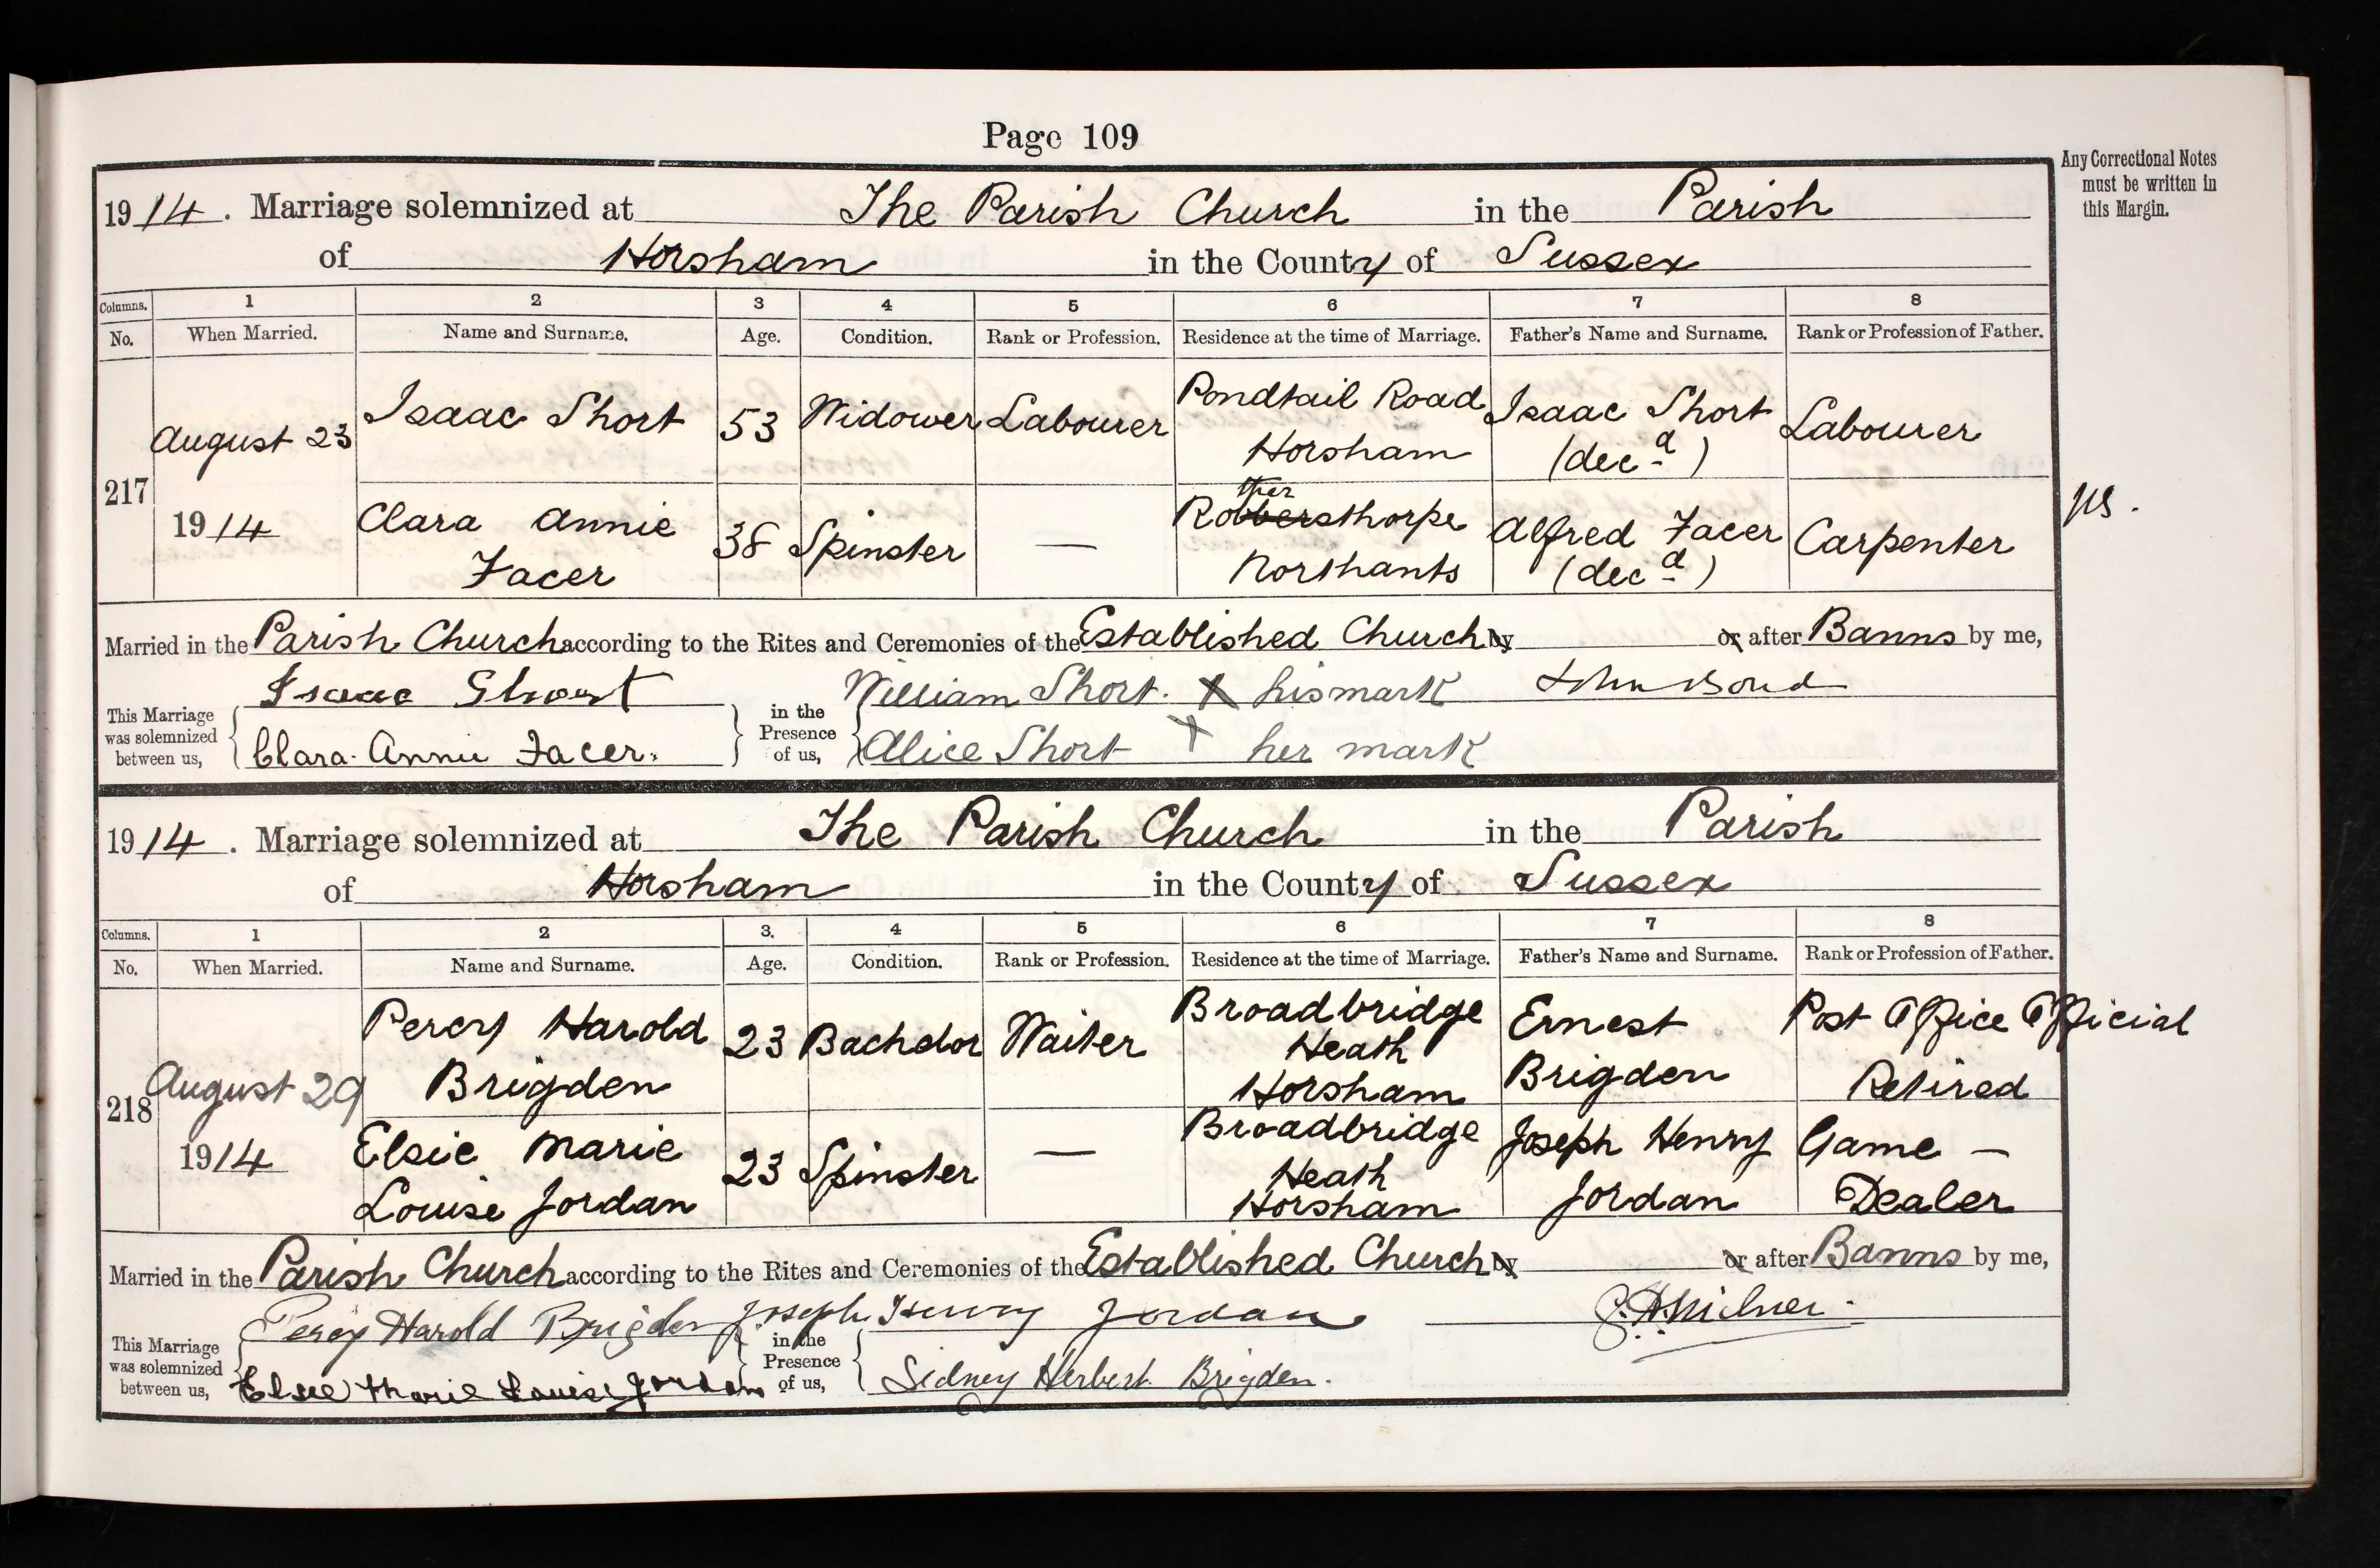 Page 109
Any Correctional Notes
must be written in
this Margin.
1914. Marriage solemnized at The Parish Church in the Parish
of Horsham in the County of Sussex
Columns. 1 2 3 4 5 6 7 8
No. When Married. Name and Surname. Age. Condition. Rank or Profession. Residence at the time of Marriage. Father's Name and Surname. Rank or Profession of Father.
217
August 23
1914
Isaac Short
53
Widower
Labourer
Pondtail Road
Horsham
Isaac Short
(decd)
Labourer
Clara Annie
Facer
38
Spinster
—
ther
Robbersthorpe
Northants
Alfred Facer
(decd)
Carpenter
Married in the Parish Church according to the Rites and Ceremonies of the Established Church by or after Banns by me,
Isaac Short William Short. X his mark John Bond
This Marriage
was solemnized
between us,
Clara Annie Facer.
in the
Presence
of us,
Alice Short X her mark
1914. Marriage solemnized at The Parish Church in the Parish
of Horsham in the County of Sussex
Columns. 1 2 3. 4 5 6 7 8
No. When Married. Name and Surname. Age. Condition. Rank or Profession. Residence at the time of Marriage. Father's Name and Surname. Rank or Profession of Father.
218
August 29
1914
Percy Harold
Brigden
23
Bachelor
Waiter
Broadbridge
Heath
Horsham
Ernest
Brigden
Post Office Official
Retired
Elsie Marie
Louise Jordan
23
Spinster
—
Broadbridge
Heath
Horsham
Joseph Henry
Jordan
Game —
Dealer
Married in the Parish Church according to the Rites and Ceremonies of the Established Church by or after Banns by me,
Percy Harold Brigden Joseph Henry Jordan Milner.
This Marriage
was solemnized
between us,
Elsie Marie Louise Jordan
in the
Presence
of us,
Sidney Herbert Brigden.